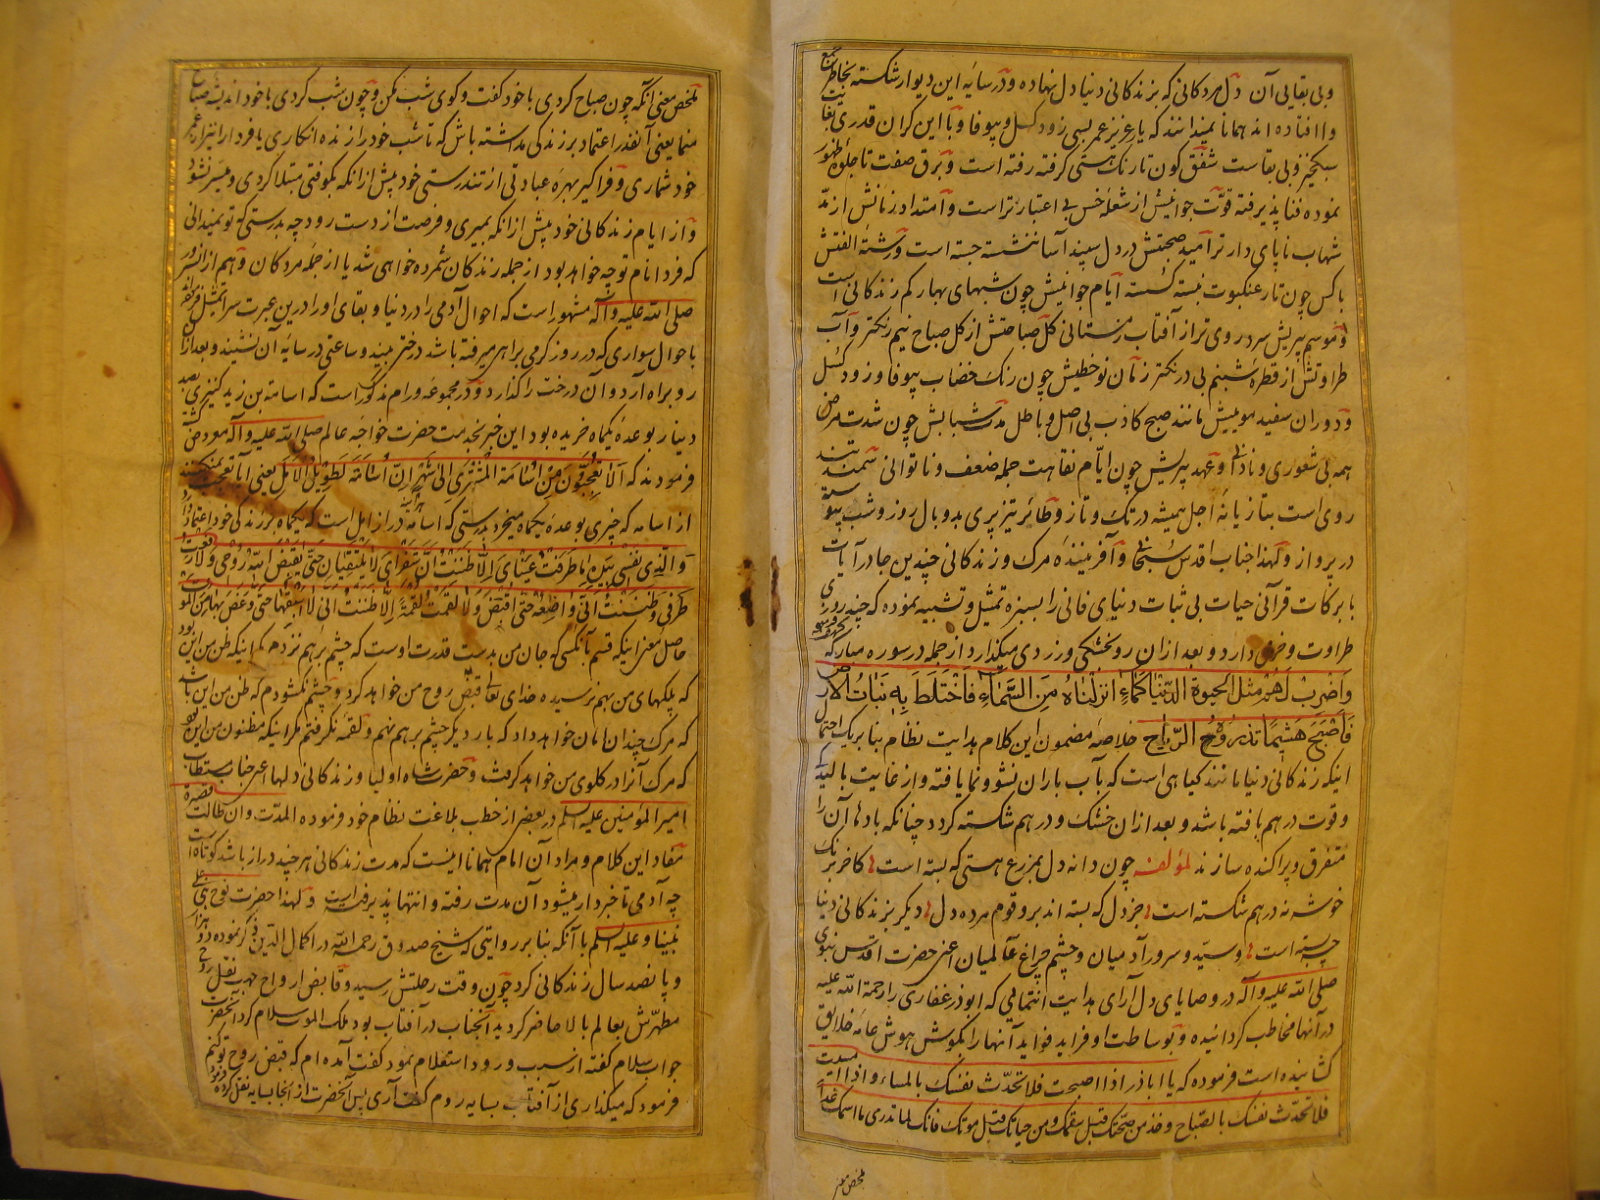 وبی بقایی آن دل مردکانی که بزندکانی دنیا دل نهاده و در سایهٔ این دیوار شکسته بخاطر جمع
وا افتاده اند همانا نمیدانند که یار عزیز عمر بسی زود کسل و بیوفا و با این کران قدری بغایت
سبکخیز و بی بقاست شفق کون تا رنک هستی کرفته رفته است و برق صفت تا جلوهٔ ظهور
نموده فنا پذیرفته قوّت جوانیش از شعلهٔ خس بی اعتبارتر است و امتداد زمانش از مدّ
شهاب ناپای دارتر امید صحبتش در دل سپند آسا ننشسته جسته است و رشتهٔ الفتش
با کس چون تار عنکبوت نبسته کسسته ایام جوانیش چون شبهای بهار کم زندکانی است
و موسم پیریش سرد روی تر از آفتاب زمستانی کل صباحتش از کل صباح نیم رنکتر و آب
طراوتش از قطرهٔ شبنم بی درنکتر زمان نوخطیش چون رنک خضاب بیوفا و زود کسل
و دوران سفید موییش مانند صبح کاذب بی اصل و باطل مدت شبابش چون شدت مرض
همه بی شعوری و نادانی و عهد پیریش چون ایّام نقاهت جمله ضعف و ناتوانی سمند تند
روی است بتازیانهٔ اجل همیشه در تک و تاز و طائر تیز پری بدو بال روز و شب پیوسته
در پرواز و لهذا جناب اقدس سبحانی و آفرینندهٔ مرک و زندکانی چندین جا در آیات
با برکات قرآنی حیات بی ثبات دنیای فانی را بسبزه تمثیل و تشبیه نموده که چند روزی
طراوت و خرمی دارد و بعد از آن رو بخشکی و زردی میکذارد از جمله در سوره مبارکه کهف فرموده
وَاضْرِبْ لَهُمْ مَثَلَ الْحَیوةِ الدُّنْیَا کَمَاءٍ اَنْزَلْنَاهُ مِنَ السَّمَاءِ فَاخْتَلَطَ بِهِ نَبَاتُ الْاَرْضِ
فَاَصْبَحَ هَشِیمًا تَذْرُوهُ الرِّیَاحُ خلاصهٔ مضمون این کلام هدایت نظام بنابر یک احتمال
اینکه زندکانی دنیا مانند کیاهی است که بآب باران نشو و نما یافته و از غایت بالیدکی
و قوت در هم بافته باشد و بعد از آن خشک و در هم شکسته کردد چنانکه بادها آن را
متفرق و پراکنده سازند لمؤلفه چون دانه دل بمزرع هستی که بسته است کاخر برنک
خوشه نه در هم شکسته است جز دل که بسته اند برو قوم مرده دل دیکر بزندکانی دنیا
چه بسته است وسیّد و سرور آدمیان و چشم و چراغ عالمیان اعنی حضرت اقدس نبوی
صلی الله علیه وآله در وصایای دل آرای هدایت انتمایی که ابوذر غفاری را رحمة الله علیه
در آنها مخاطب کردانیده و بوساطت او فراید فواید آنها را بکوش هوش عامهٔ خلایق
کشانیده است فرموده که یا اباذر اذا اصبحت فلا تحدّث نفسک بالمساء و اذا امسیت
فلا تحدّث نفسک بالصباح و خذ من صحّتک قبل سقمک و من حیاتک قبل موتک فانک لا تدری ما اسمک غداً
ملخص معنی
ملخص معنی آنکه چون صباح کردی با خود کفت و کوی شب مکن و چون شب کردی با خود اندیشهٔ صباح
منما یعنی آنقدر اعتماد بر زندکی مداشته باش که تا شب خود را زنده انکاری یا فردا را نیز از عمر
خود شماری و فرا کیر بهرهٔ عبادتی از تندرستی خود پیش از انکه بکوفتی مبتلا کردی و میسّر نشود
و از ایام زندکانی خود پیش از انکه بمیری و فرصت از دست رود چه بدرستی که تو نمیدانی
که فردا نام تو چه خواهد بود از جمله زندکان شمرده خواهی شد یا از جملهٔ مردکان و هم از آنسرور
صلی الله علیه وآله مشهور است که احوال آدمی را در دنیا و بقای او را درین عبرت سرا تمثیل فرموده
باحوال سواری که در روز کرمی براهی میرفته باشد درختی بیند و ساعتی در سایهٔ آن نشیند و بعد از آن
رو براه آرد و آن درخت را کذارد و در مجموعه ورام مذکور است که اسامة بن زید کنیزی بصد
دینار بوعده یکماه خریده بود این خبر بخدمت حضرت خواجه عالم صلی الله علیه وآله معروض کشت
فرمودند که اَلَا تَعْجَبُونَ مِنْ اُسَامَةَ الْمُشْتَرِی اِلی شَهْرٍ اِنَّ اُسَامَةَ لَطَوِیلُ الْاَمَلِ یعنی آیا تعجب نمیکنید
از اسامه که چیزی بوعدهٔ یکماه میخرد بدرستی که اسامه دراز امل است که یکماه بر زندکی خود اعتماد دارد
وَالَّذِی نَفْسِی بِیَدِهِ مَا طَرَفَتْ عَیْنَایَ اِلَّا ظَنَنْتُ اَنَّ شَفْرَایَ لَا یَلْتَقِیَانِ حَتّی یَقْبِضَ اللهُ رُوحِی وَلَا رَفَعْتُ
طَرْفِی وَظَنَنْتُ اَنِّی وَاضِعُهُ حَتّی اُقْبَضَ وَلَا لَقِمْتُ لُقْمَةً اِلَّا ظَنَنْتُ اَنِّی لَا اُسِیغُهَا حَتّی اَغَصَّ بِهَا مِنَ الْمَوْتِ
حاصل معنی اینکه قسم بآنکسی که جان من بدست قدرت اوست که چشم برهم نزدم مکر اینکه ظن من این بود
که پلکهای من بهم نرسیده خدای تعالی قبض روح من خواهد کرد و چشم نکشودم که ظن من این باشد
که مرک چندان امان خواهد داد که بار دیکر چشم بر هم نهم و لقمه نکرفتم مکر اینکه مظنون من این بود
که مرک آنرا در کلوی من خواهد کرفت و حضرت شاه اولیا و زندکانی دلها اعنی جناب مستطاب
امیر المؤمنین علیه السلم در بعضی از خطب بلاغت نظام خود فرموده المدّت وان طالت قصیرة
مفاد این کلام و مراد آن امام همانا اینست که مدت زندکانی هر چند دراز باشد کوتاه است
چه آدمی تا خبردار میشود آن مدت رفته و انتها پذیرفته است و لهذا حضرت نوح نبی علی
نبینا و علیه السلم با آنکه بنابر روایتی که شیخ صدوق رحمه الله در اکمال الدین ذکر نموده دو هزار
و پانصد سال زندکانی کرد چون وقت رحلتش رسید و قابض ارواح جهت نقل روح
مطهرش بعالم بالا حاضر کردید آنجناب در آفتاب بود ملک الموت سلام کرد آنحضرت
جواب سلام کفته از سبب ورود استعلام نمود کفت آمده ام که قبض روح تو کنم
فرمود که میکذاری از آفتاب بسایه روم کفت آری پس آنحضرت از آنجا بسایه نقل کرده فرمود